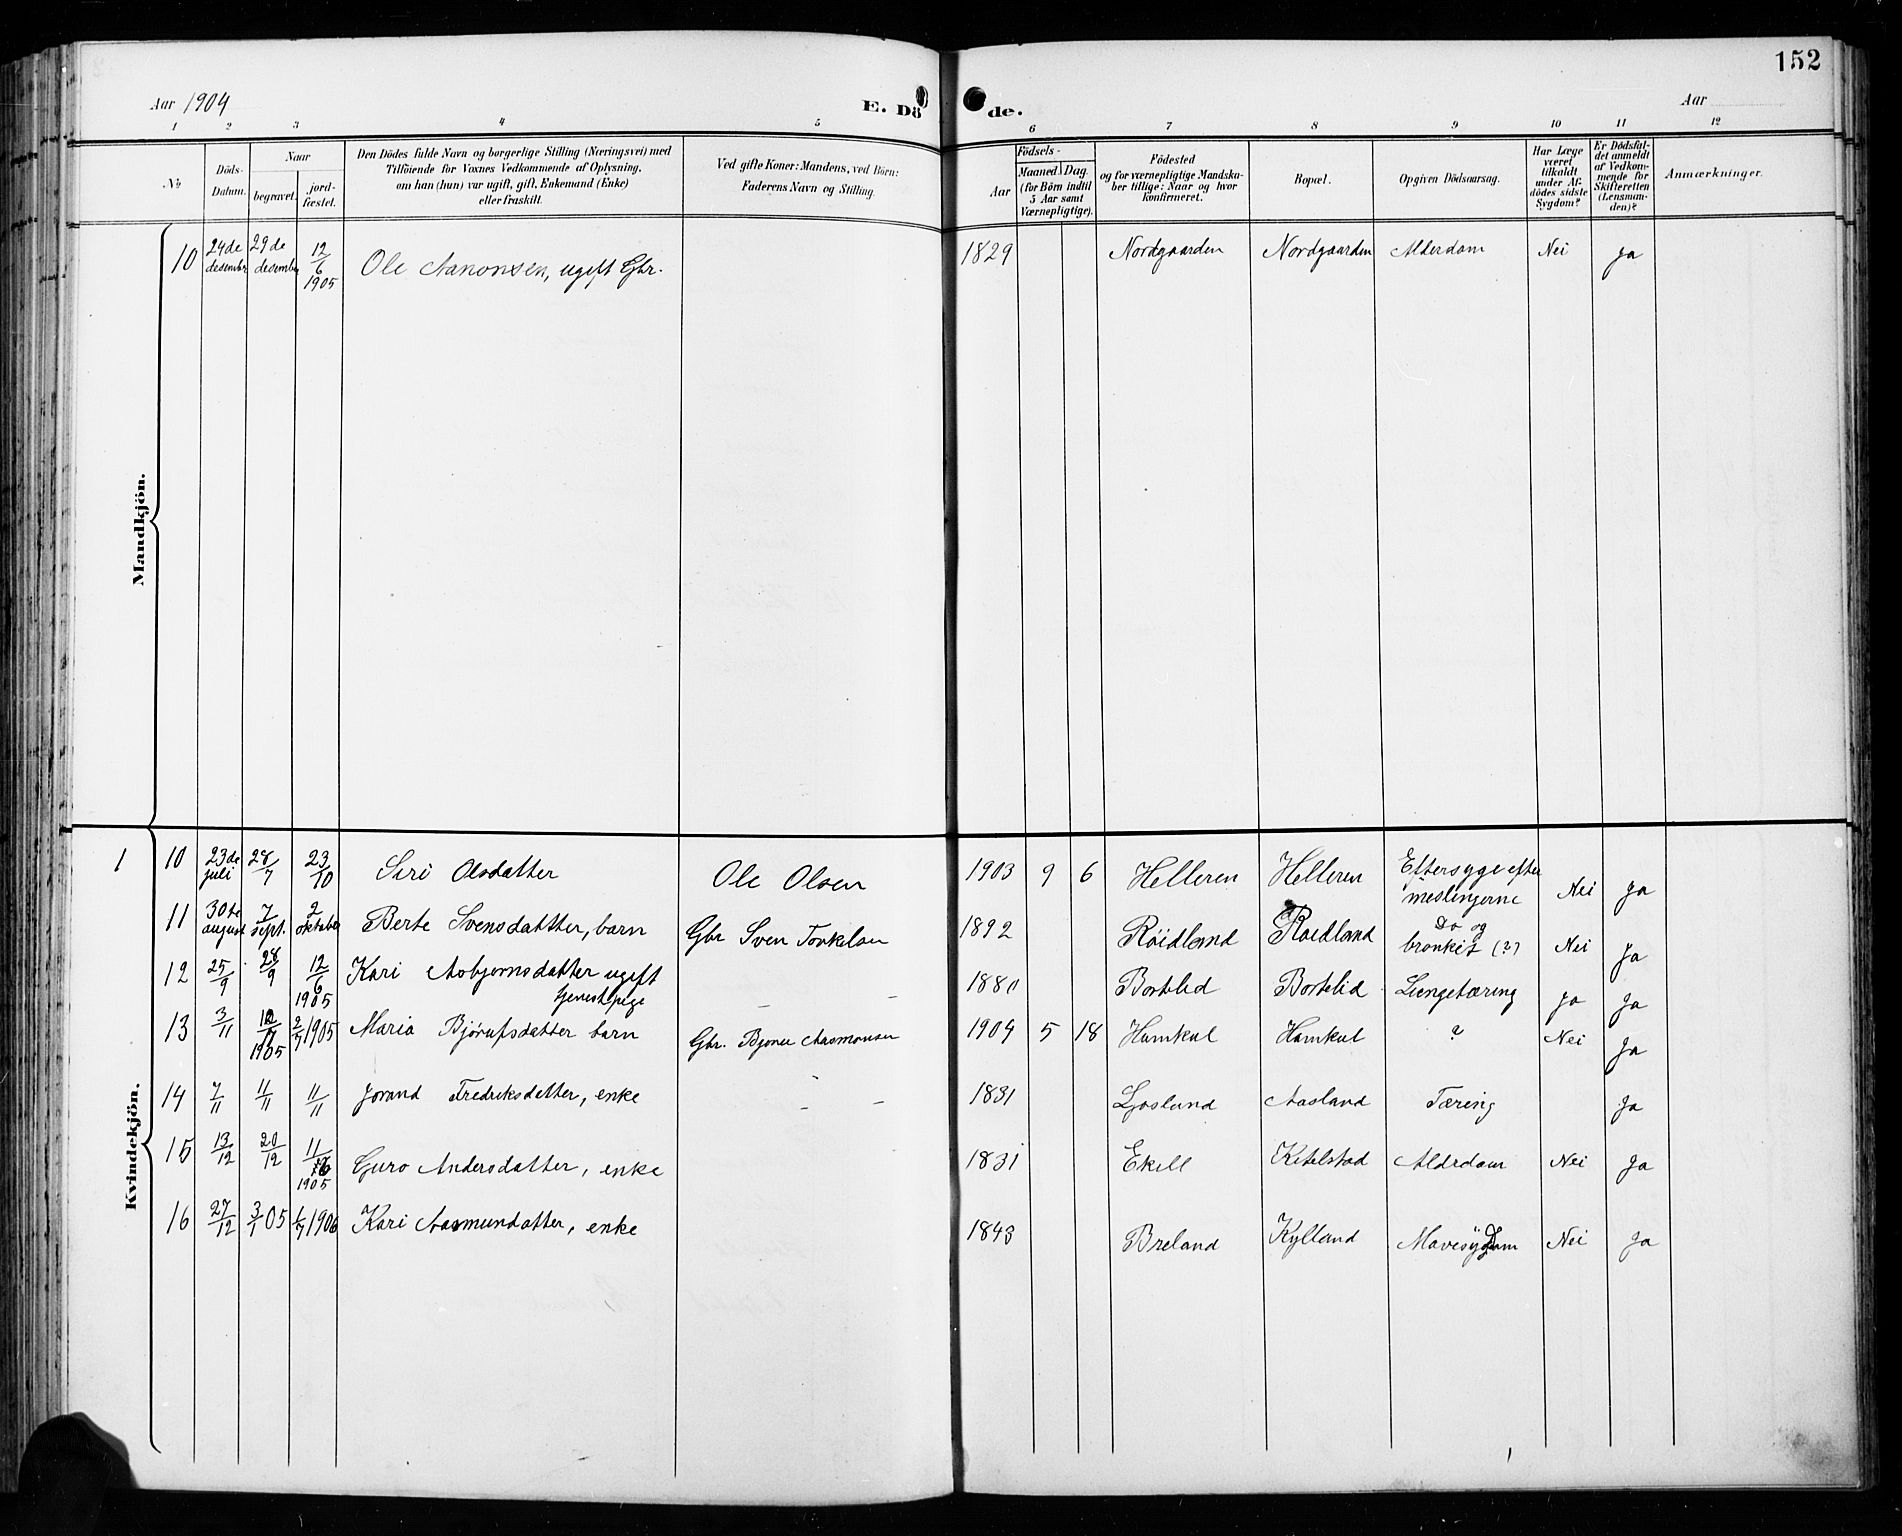 152
Aar 1904
E. Dö de.
Aar
1 2 3 4 5 6 7 8 9 10 11 12
No
Döds-
Datum.
Naar
begravet.
jord-
fæstet.
Den Dödes fulde Navn og borgerlige Stilling (Næringsvei) med
Tilföiende for Voxnes Vedkommende af Oplysning,
om han (hun) var ugift, gift, Enkemand (Enke)
eller fraskilt.
Ved gifte Koner: Mandens, ved Börn:
Faderens Navn og Stilling.
Födsels-
Aar
Maaned Dag.
(for Börn indtil
5 Aar samt
Værnepligtige).
Födested
og for værnepligtige Mandska-
ber tillige: Naar og hvor
konfirmeret.
Bopæl.
Opgiven Dödsaarsag.
Har Læge
været
tilkaldt
under Af-
dödes sidste
Sygdom?
Er Dödsfal-
det anmeldt
af Vedkom-
mende for
Skifteretten
(Lensman-
den)?
Anmærkninger.
Mandkjön.
10 24de desembr 29de desember 12/6 1905 Ole Aanonsen, ugift Gbr. 1829 Nordgaarden Nordgaarden Alderdom Nei Ja
Kvindekjön.
1 10 23de juli 28/7 23/10 Siri Olsdatter Ole Olsen 1903 9 6 Helleren Helleren Eftersyge efter meslingerne Nei Ja
11 30te august 7/sept. 2/oktober Berte Svensdattter, barn Gbr Sven Torkelsen 1892 Röidland Röidland Do og bronkit (?) Nei Ja
12 25/9 28/9 12/6 1905 Kari Asbjørnsdatter ugift tjenestpige - - 1880 Bortelid Bortelid Lungetæring Ja Ja
13 3/11 1905 2/7 1905 Maria datter barn Gbr. Aasmonsen 1904 5 18 Homkul Homkul ? Nei Ja
14 7/11 11/11 11/11 Jorand Fredriksdatter, enke - - 1831 Ljosland Aasland Tæring Ja
15 13/12 20/12 11/6 1905 Guro Andersdatter, enke 1831 Ekell Ketelstad Alderdom Nei Ja
16 27/12 3/1 05 1/7 1906 Kari Aasmundatter, enke 1843 Breland Kylland Mavesygdom Nei Ja